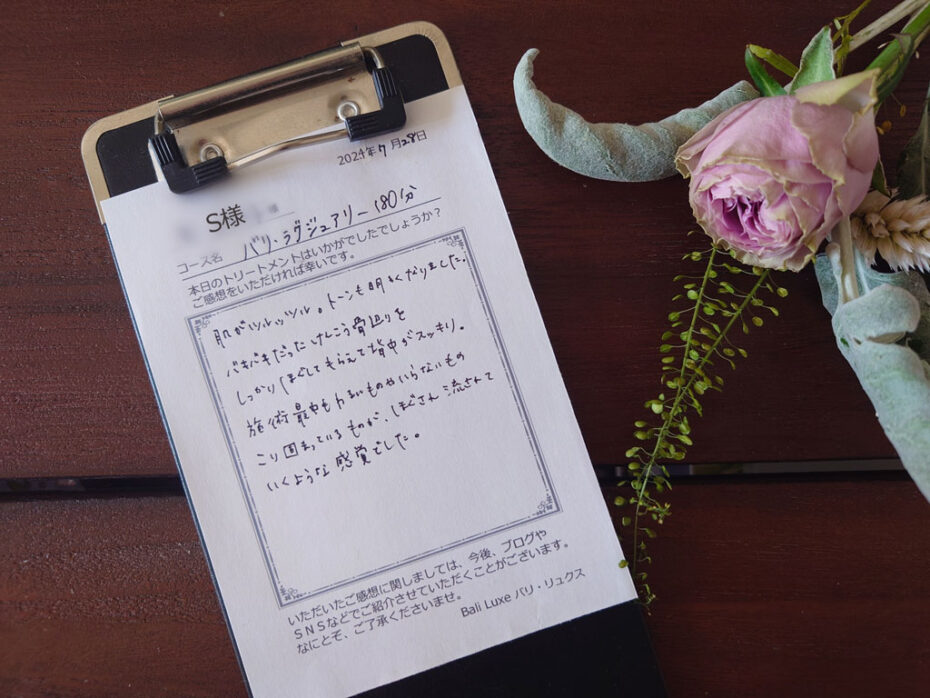 2024年7月28日
S様
コース名 バリ・ラグジュアリー180分
本日のトリートメントはいかがでしたでしょうか？
ご感想をいただければ幸いです。
肌がツルッツル。トーンも明るくなりました。
バキバキだったけんこう骨辺りを
しっかりほぐしてもらえて背中がスッキリ。
施術最中もわるいものやいらないもの
こり固まっているものが、ほぐされ流されて
いくような感覚でした。
いただいたご感想に関しましては、今後、ブログや
ＳＮＳなどでご紹介させていただくことがございます。
なにとぞ、ご了承くださいませ。
Bali Luxe バリ・リュクス